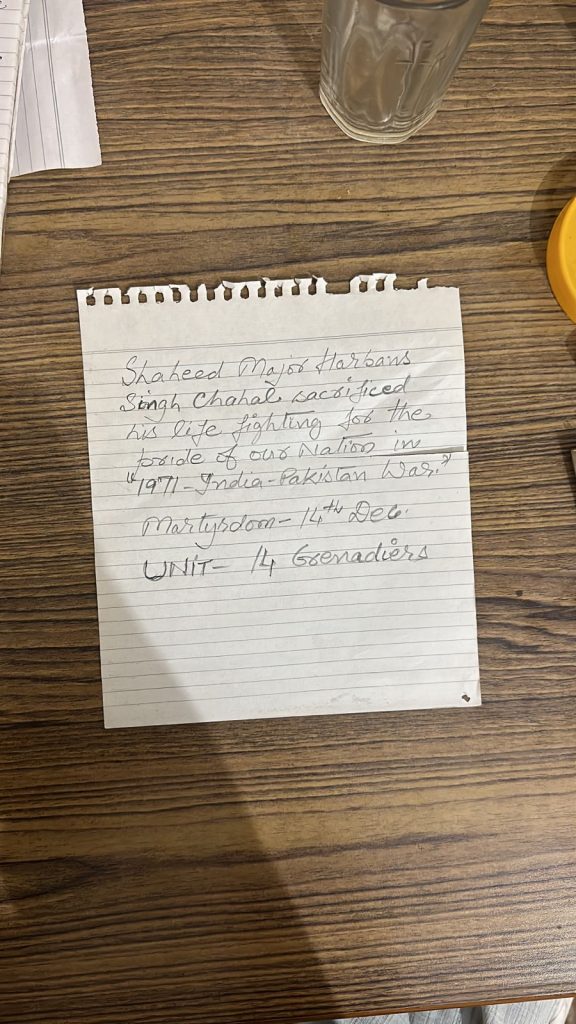 Shaheed Major Harbans
Singh Chahal sacrificed
his life fighting for the
pride of our Nation in
"1971-India-Pakistan War."
Martyrdom- 14th Dec.
UNIT- 14 Grenadiers